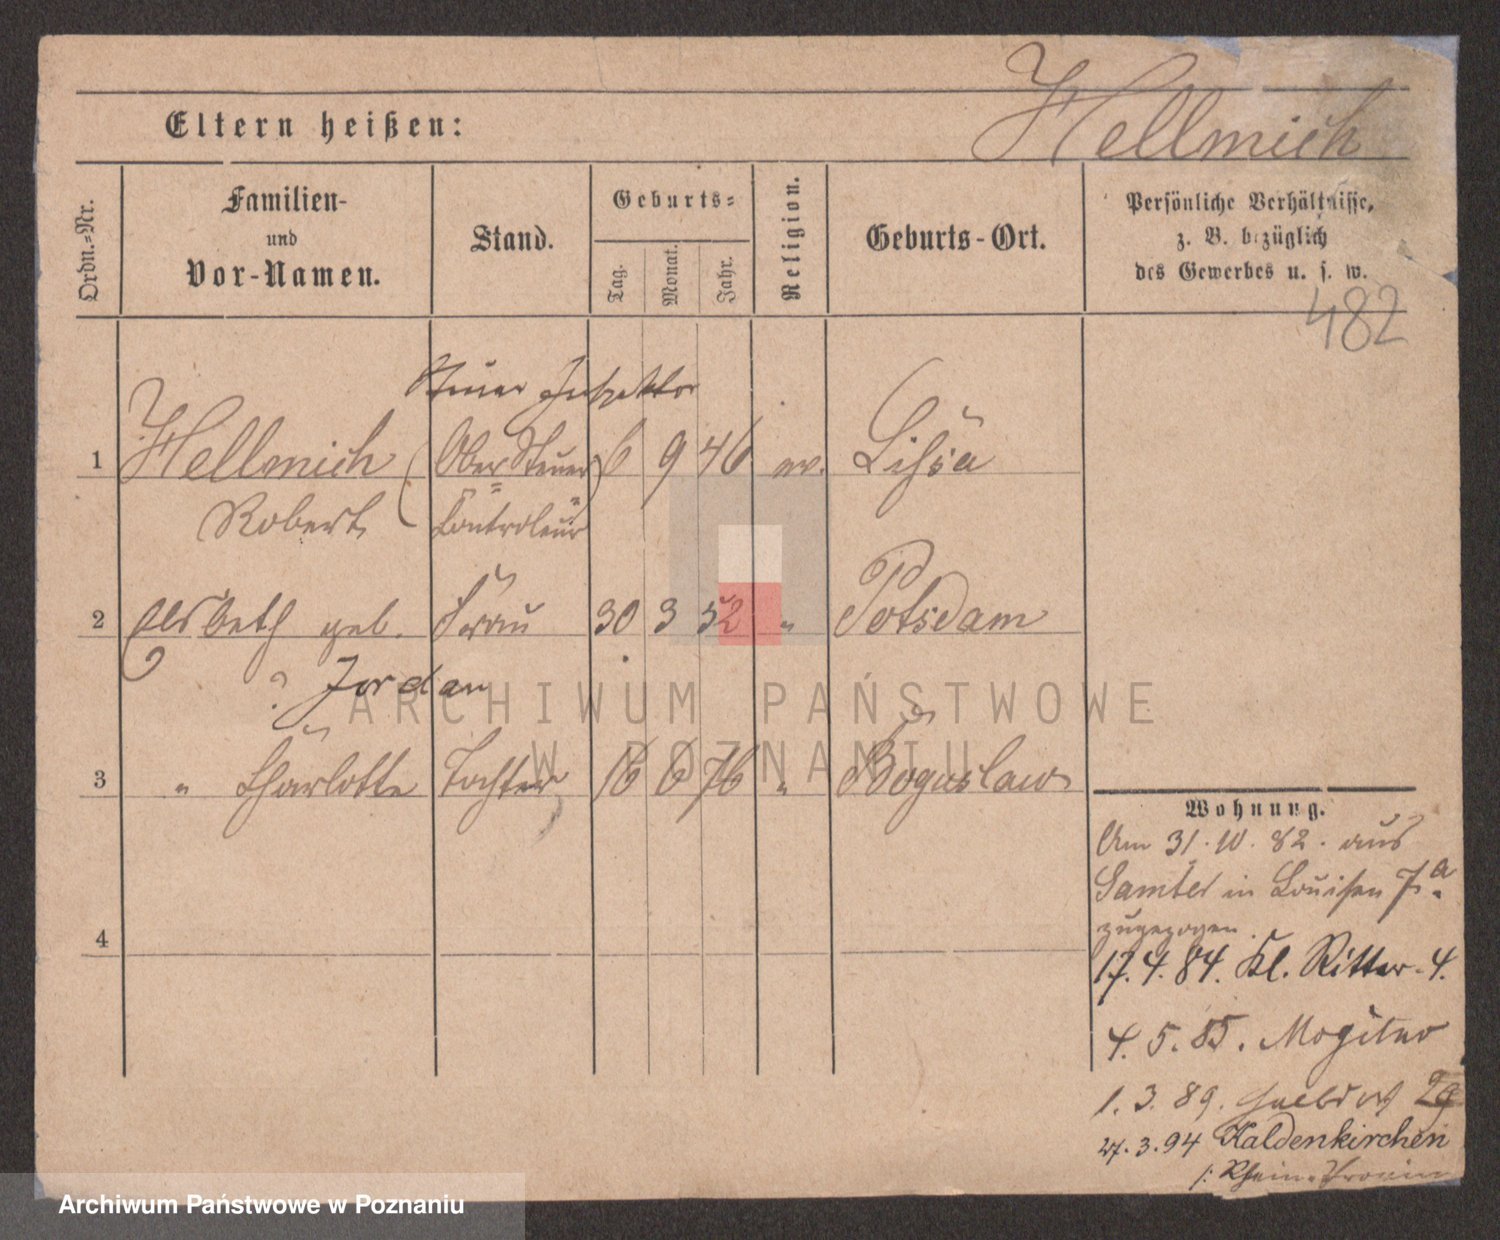 Hellmich
Eltern heißen:
Ordn.-Nr.
Familien-
und
Vor-Namen.
Stand.
Geburts-
Tag.
Monat.
Jahr.
Religion.
Geburts-Ort.
Persönliche Verhältnisse,
z. B. bezüglich
des Gewerbes u. s. w.
482
Steuer Inspektor
1 Hellmich (Ober Steuer) 6 9 46 ev. Lissa
Robert Controleur
2 Elsbeth geb. Frau 30 3 52 " Potsdam
? Jordan
3 " Charlotte Tochter 16 6 76 " Boguslaw
4
Wohnung.
Am 31.10.82. aus
Samter in Louisen 7a
zugezogen.
17.4.84. Kl. Ritter. 4.
4.5.85. Mogilno
1.3.89.
27.3.94 Kaldenkirchen
/: Rhein-Provinz
ARCHIWUM PAŃSTWOWE
W POZNANIU
Archiwum Państwowe w Poznaniu